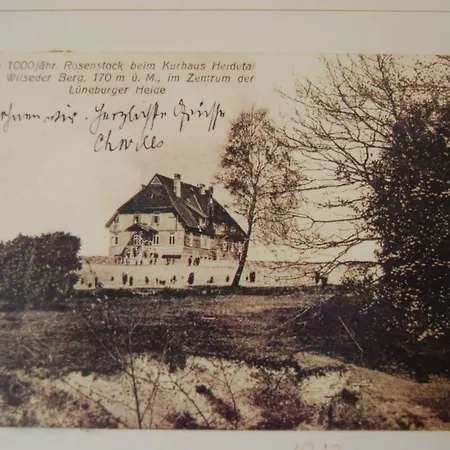 1000jähr. Rosenstock beim Kurhaus Heidetal
Wilseder Berg, 170 m ü. M., im Zentrum der
Lüneburger Heide
wir. Herzlichste Grüsse